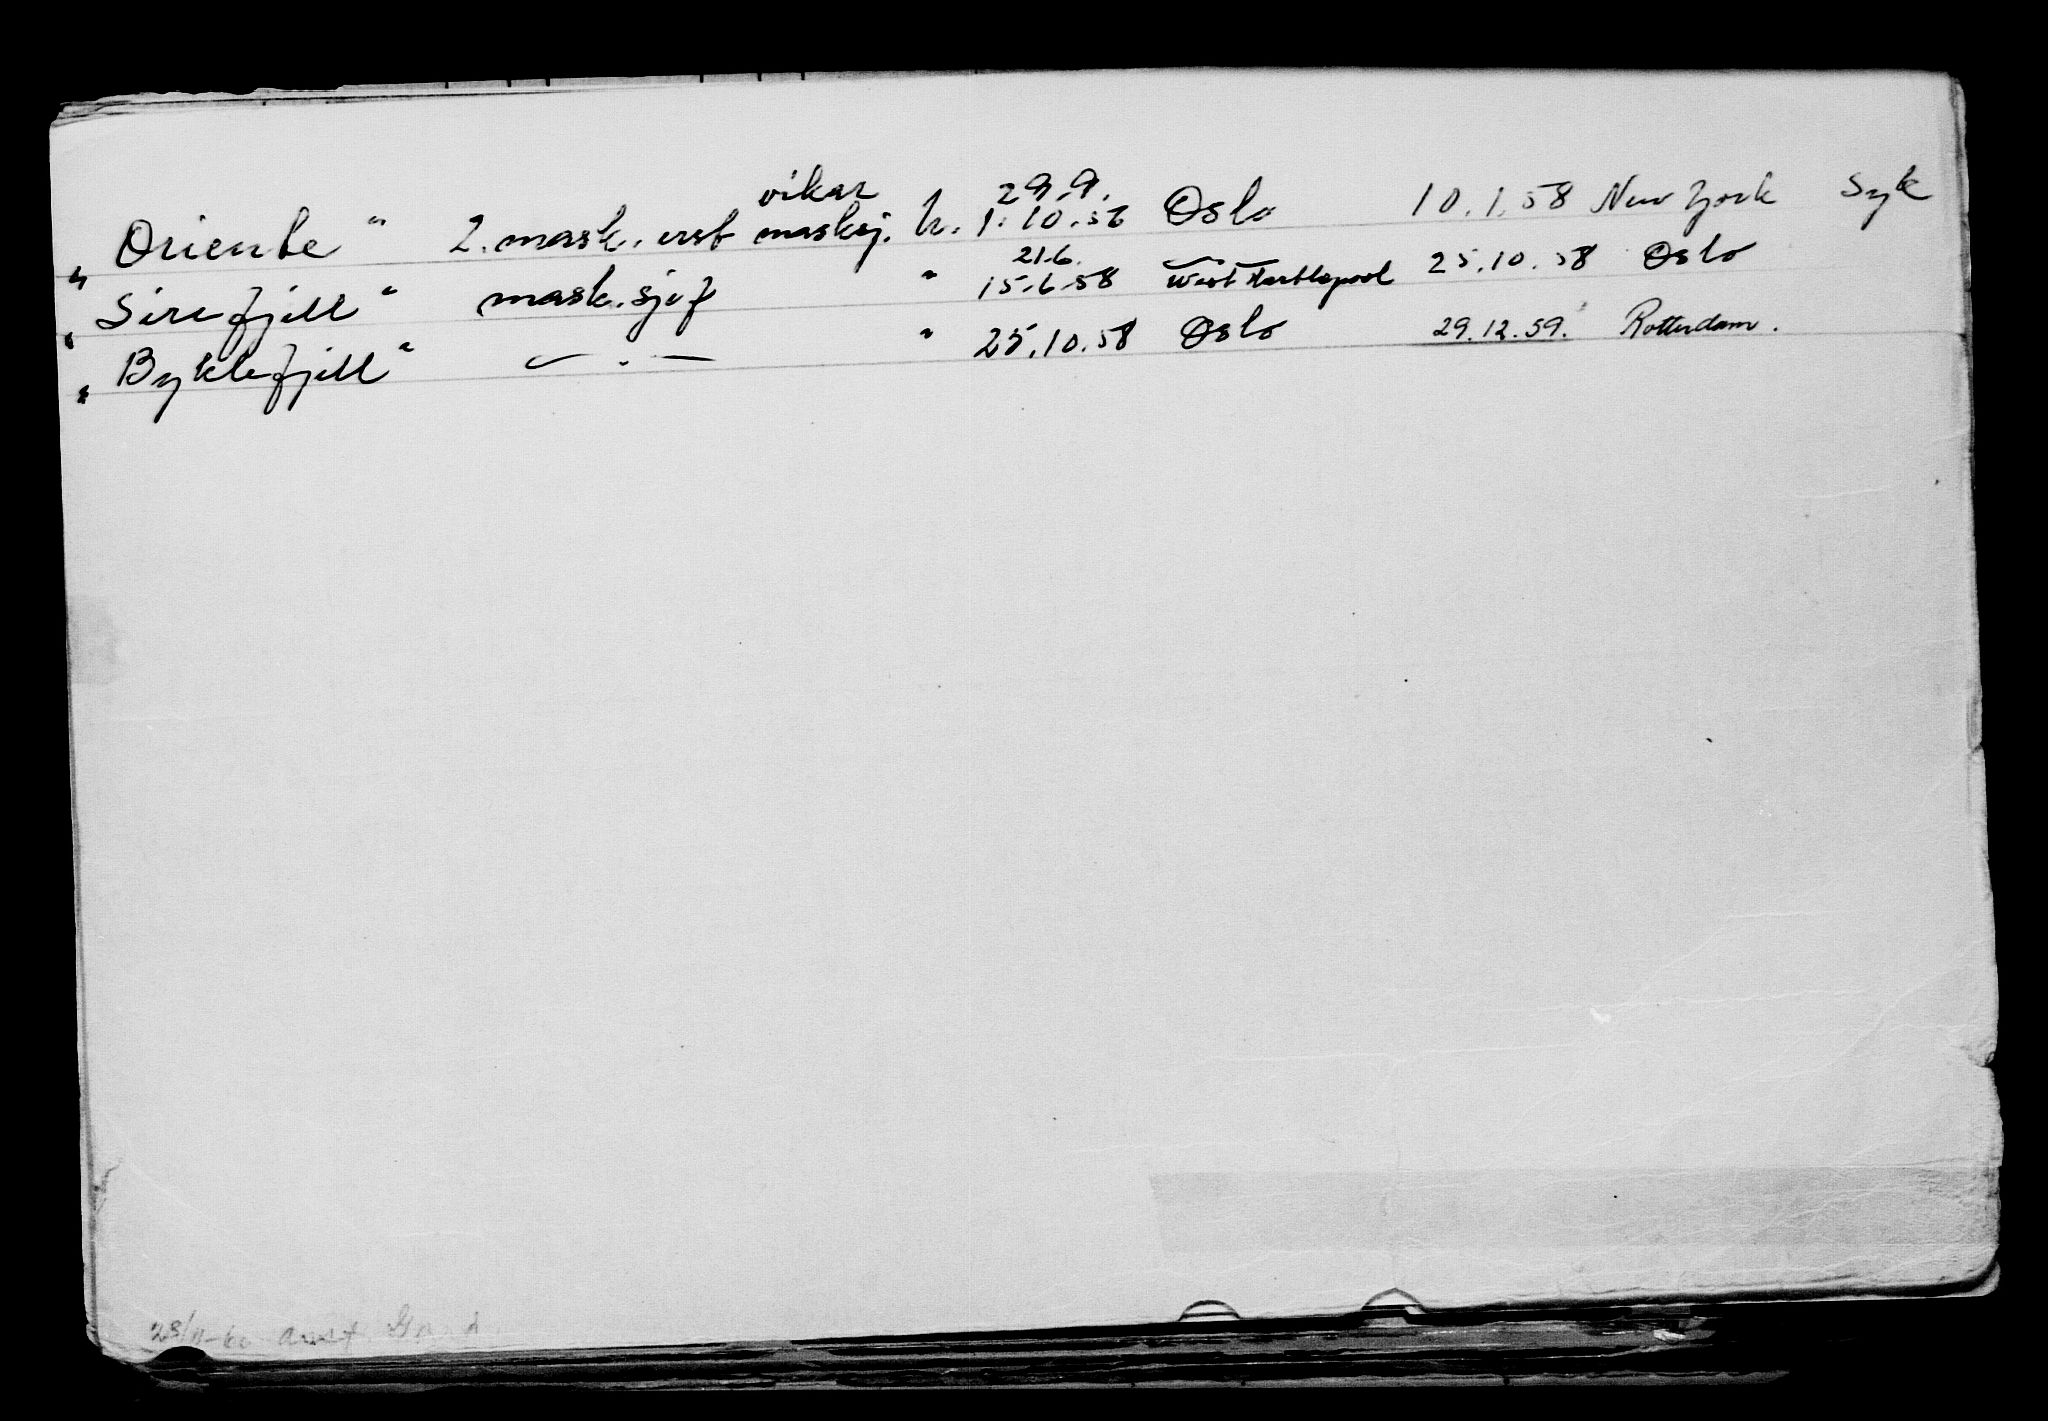 vikar 29.9.
„Oriente“ 2. mask. erst masksj. h. 1.10.56 Oslo 10.1.58 New York Syk
21.6.
„Sirefjell“ mask.sjef " 15.6.58 West Hartlepool 25.10.58 Oslo
„Byklefjell“ — . — " 25.10.58 Oslo 29.12.59. Rotterdam.
23/11-60